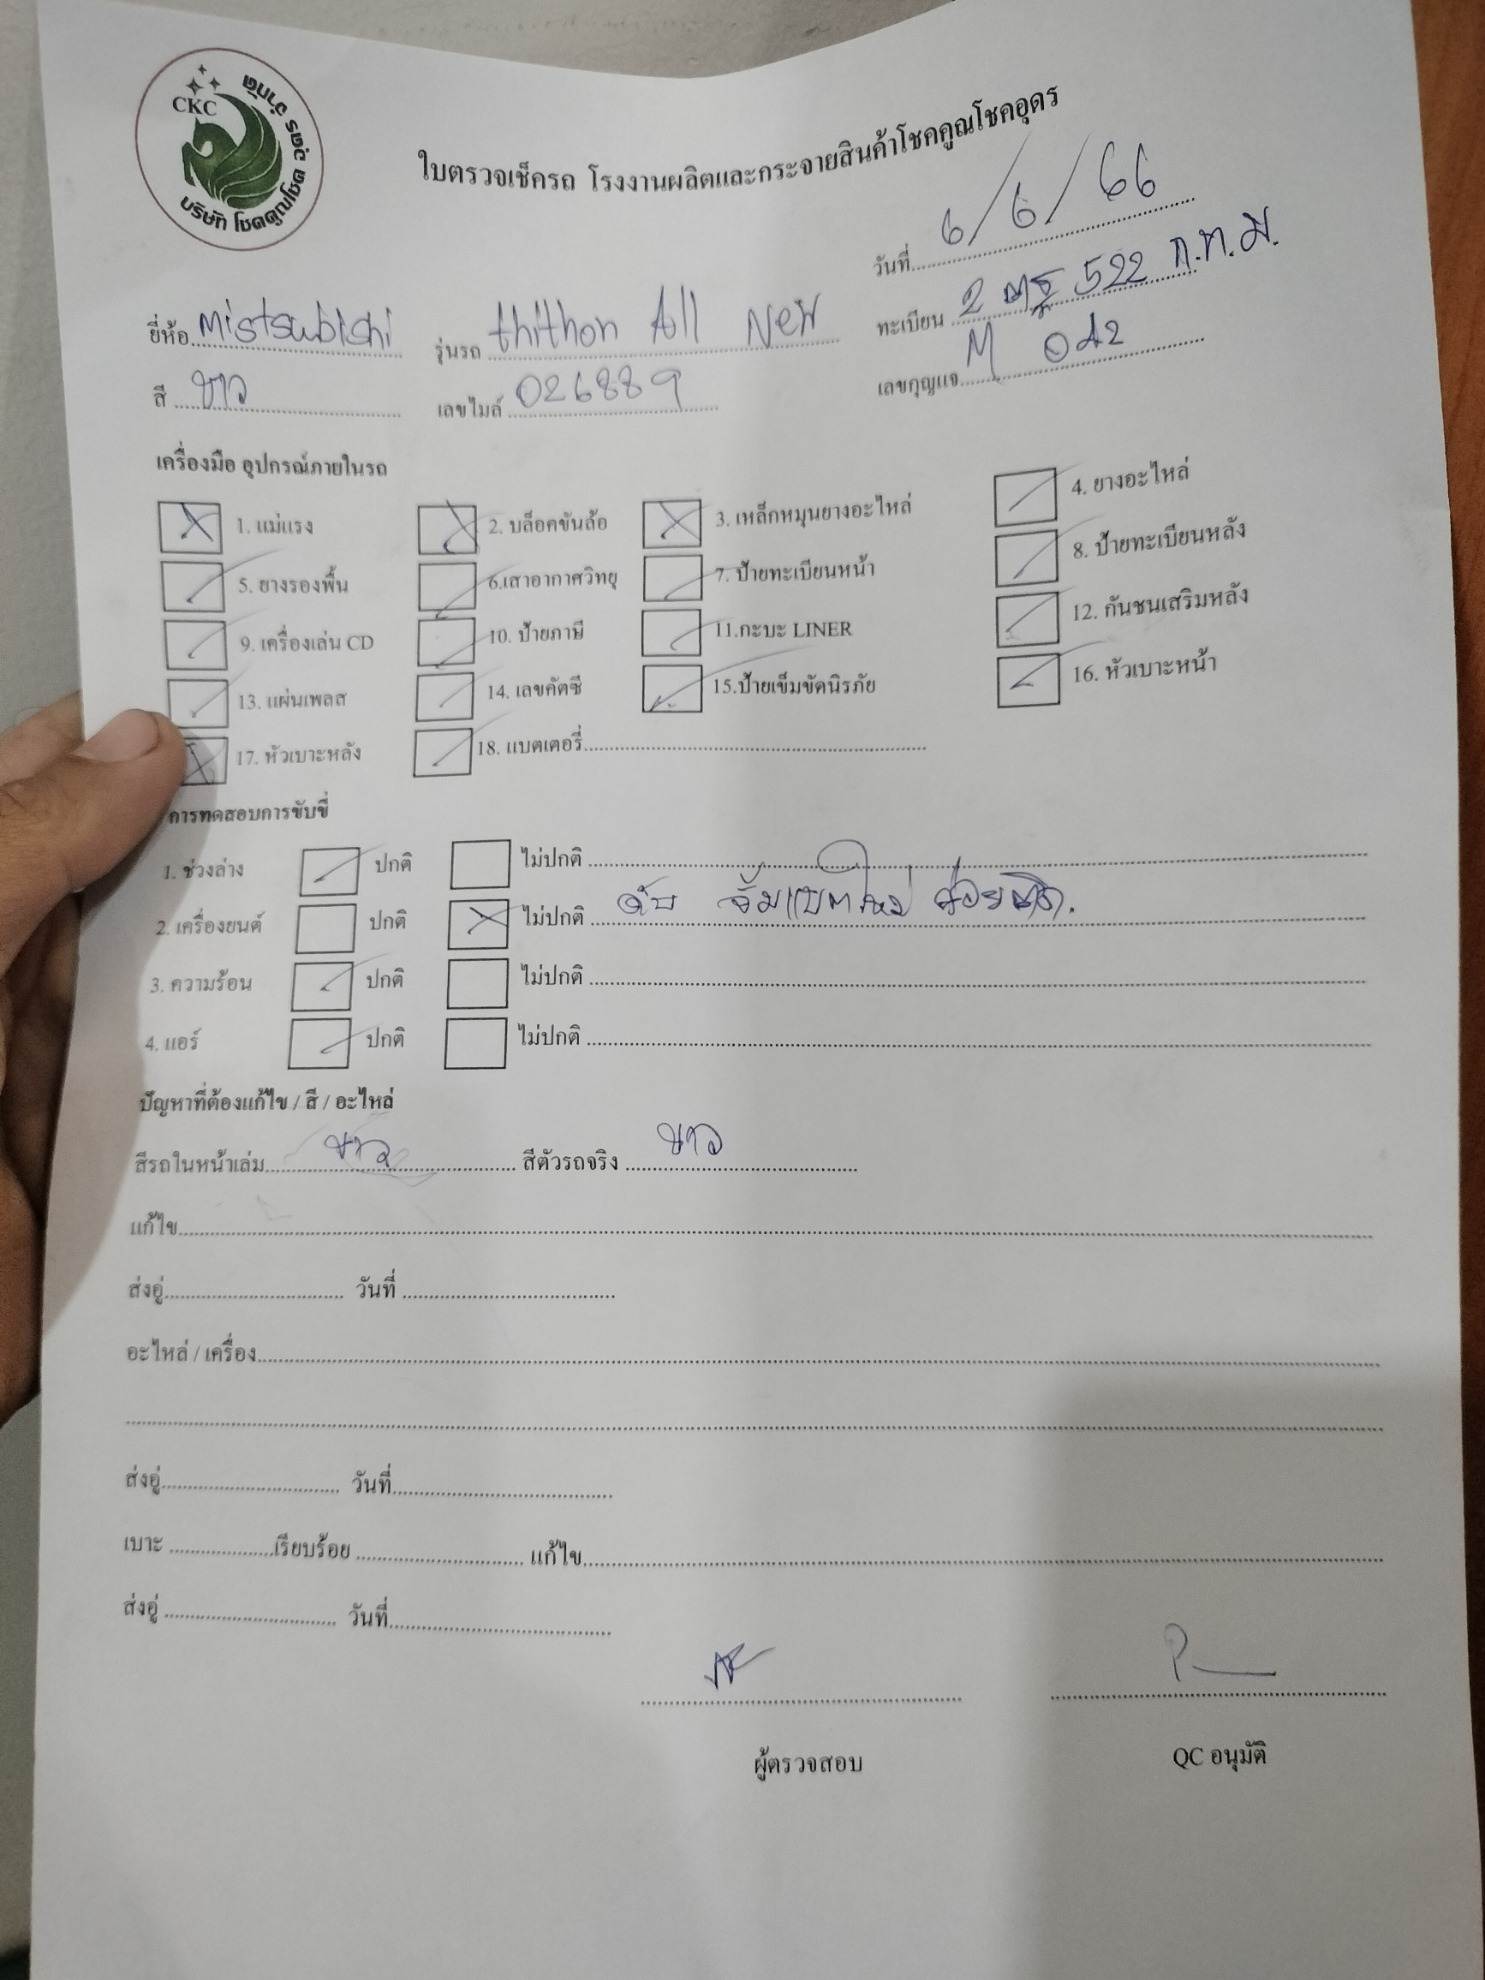 CKC
บริษัท โชคคูณโชค อุดร จำกัด
ใบตรวจเช็ครถ โรงงานผลิตและกระจายสินค้าโชคคูณโชคอุดร
วันที่ 6/6/66
ยี่ห้อ Mistsubishi รุ่นรถ thithon All New ทะเบียน 2 ฒฐ 522 ก.ท.ม.
สี ขาว เลขไมล์ 026889 เลขกุญแจ M 042
เครื่องมือ อุปกรณ์ภายในรถ
1. แม่แรง 2. บล็อคขันล้อ 3. เหล็กหมุนยางอะไหล่ 4. ยางอะไหล่
5. ยางรองพื้น 6.เสาอากาศวิทยุ 7. ป้ายทะเบียนหน้า 8. ป้ายทะเบียนหลัง
9. เครื่องเล่น CD 10. ป้ายภาษี 11.กะบะ LINER 12. กันชนเสริมหลัง
13. แผ่นเพลส 14. เลขคัตซี 15.ป้ายเข็มขัดนิรภัย 16. หัวเบาะหน้า
17. หัวเบาะหลัง 18. แบตเตอรี่
การทดสอบการขับขี่
1. ช่วงล่าง ปกติ ไม่ปกติ
2. เครื่องยนต์ ปกติ ไม่ปกติ ดับ จั้มแบตใหม่ ค่อยติด.
3. ความร้อน ปกติ ไม่ปกติ
4. แอร์ ปกติ ไม่ปกติ
ปัญหาที่ต้องแก้ไข / สี / อะไหล่
สีรถในหน้าเล่ม ขาว สีตัวรถจริง ขาว
แก้ไข
ส่งอู่ วันที่
อะไหล่ / เครื่อง
ส่งอู่ วันที่
เบาะ เรียบร้อย แก้ไข
ส่งอู่ วันที่
ผู้ตรวจสอบ QC อนุมัติ